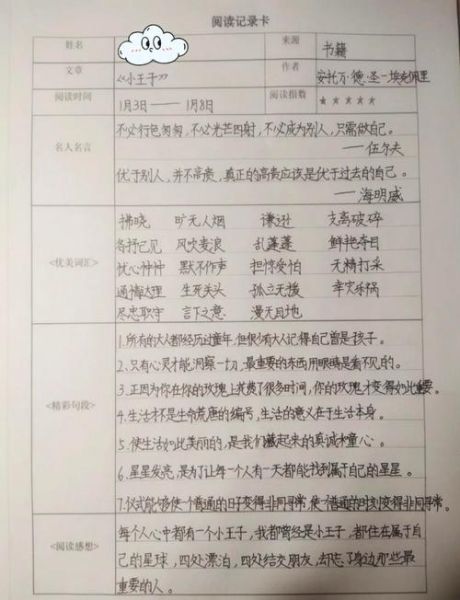 阅读记录卡
姓名 来源 书籍
文章 《小王子》 作者 安托万·德·圣-埃克佩里
阅读时间 1月3日——1月8日 阅读指数 ★★★★★
名人名言
不必行色匆匆,不必光芒四射,不必成为别人,只需做自己。
——伍尔夫
优于别人,并不高贵,真正的高贵应该是优于过去的自己。
——海明威
<优美词汇>
拂晓 旷无人烟 谦逊 支离破碎
各抒己见 风吹麦浪 乱蓬蓬 鲜艳夺目
忧心忡忡 默不作声 担惊受怕 无精打采
通情达理 生死关头 孤立无援 幸灾乐祸
尽忠职守 言下之意 漫无目地
<精彩句段>
1.所有的大人都经历过童年,但很少大人记得自己曾是孩子。
2.只有心灵才能洞察一切,最重要的东西用眼睛是看不见的。
3.正因为你在你的玫瑰上花费了很多时间,你的玫瑰才变得如此重要。
4.生活才不是生命荒唐的编号,生活的意义在于生活本身。
5.使生活如此美丽的,是我们藏起来的真诚和童心。
6.星星发亮,是为了让每一个人有一天都能找到属于自己的星星。
7.仪式能够使一个普通的日子变得非同寻常,使一个普通的时刻变得非同寻常。
<阅读感想>
每个人心中都有一个小王子,我都曾经是小王子,都住在属于自
己的星球,四处漂泊,四处结交朋友,却忘了身边那些最
重要的人。